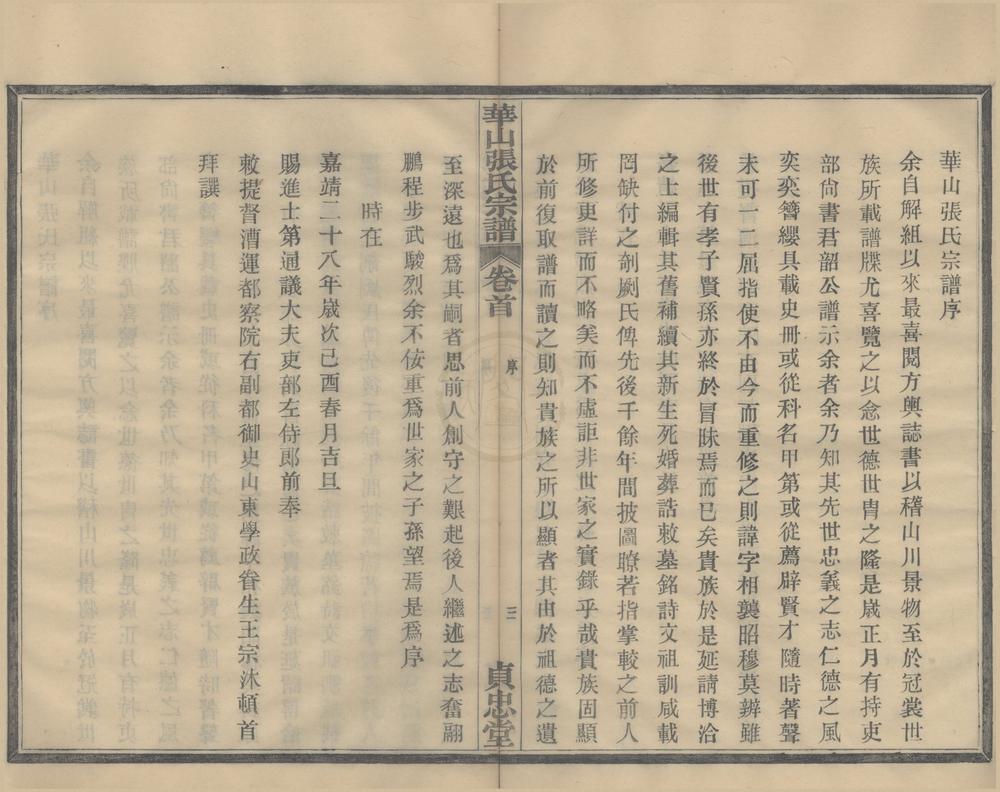 華山張氏宗譜序
余自解組以來最喜閱方輿誌書以稽山川景物至於冠裳世
族所載譜牒尤喜覽之以念世德世冑之隆是歲正月有持吏
部尙書君韶公譜示余者余乃知其先世忠義之志仁德之風
奕奕簪纓具載史冊或從科名甲第或從薦辟賢才隨時著聲
未可一二屈指使不由今而重修之則諱字相襲昭穆莫辨雖
後世有孝子賢孫亦終於冒昧焉而已矣貴族於是延請博洽
之士編輯其舊補續其新生死婚葬誥敕墓銘詩文祖訓咸載
罔缺付之剞劂氏俾先後千餘年間披圖瞭若指掌較之前人
所修更詳而不略美而不虛詎非世家之實錄乎哉貴族固顯
於前復取譜而讀之則知貴族之所以顯者其由於祖德之遺
華山張氏宗譜
卷首
序
三
貞忠堂
至深遠也爲其嗣者思前人創守之艱起後人繼述之志奮翮
鵬程步武駿烈余不佞重爲世家之子孫望焉是爲序
時在
嘉靖二十八年歲次己酉春月吉旦
賜進士第通議大夫吏部左侍郎前奉
敕提督漕運都察院右副都御史山東學政眷生王宗沐頓首
拜譔